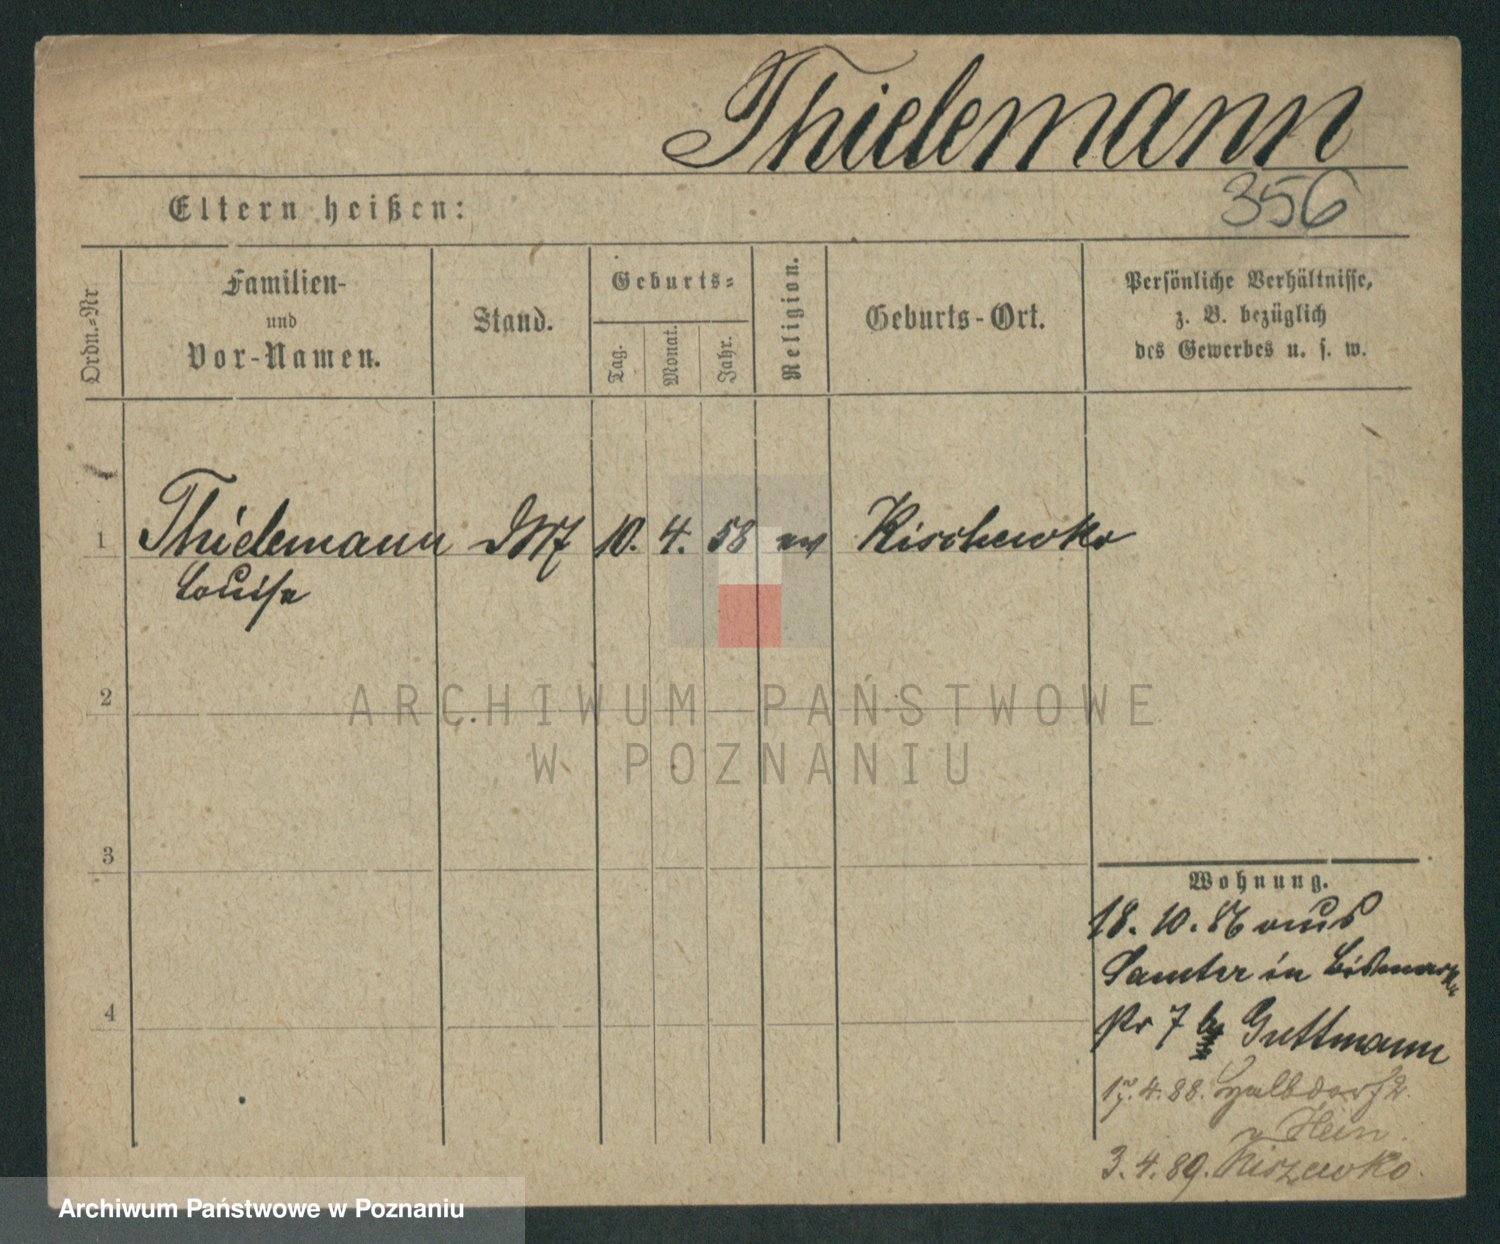 Thielemann
356
Eltern heißen:
Ordn.-Nr
Familien-
und
Vor-Namen.
Stand.
Geburts-
Tag.
Monat.
Jahr.
Religion.
Geburts-Ort.
Persönliche Verhältnisse,
z. B. bezüglich
des Gewerbes u. s. w.
1 Thielemann 10. 4. 58 ev Kischewko
Louise
2
ARCHIWUM PAŃSTWOWE
W POZNANIU
3
4
Wohnung.
18. 10. 86 aus
Samter in Bismark
7 Guttmann
4. 88. Halbdorfstr.
Hein
3. 4. 89. Kiszewko.
Archiwum Państwowe w Poznaniu